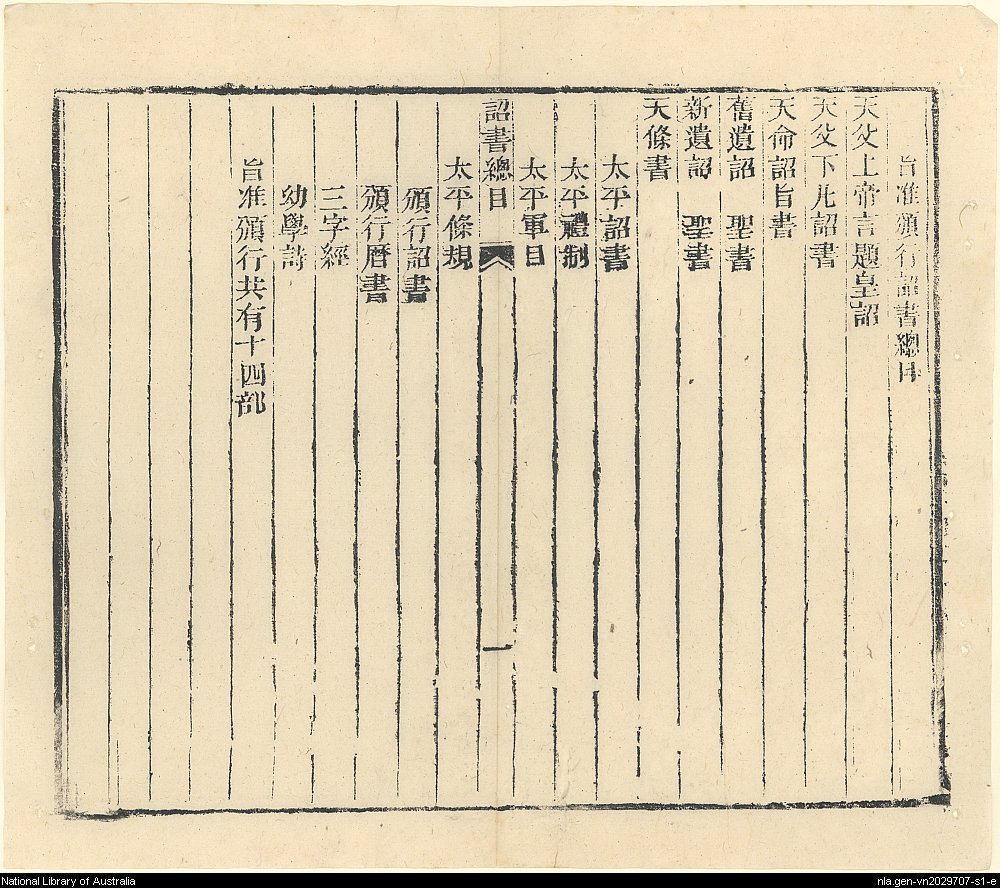 旨准頒行詔書總目
天父上帝言題皇詔
天父下凡詔書
天命詔旨書
舊遺詔 聖書
新遺詔 聖書
天條書
太平詔書
太平禮制
太平軍目
詔書總目 一
太平條規
頒行詔書
頒行曆書
三字經
幼學詩
旨准頒行共有十四部
National Library of Australia
nla.gen-vn2029707-s1-e